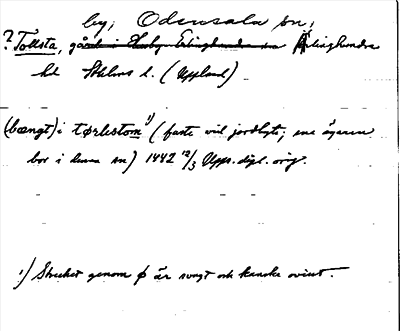 by, Odensala sn,
? Tollsta, gård i Husby-Ärlinghundra sn Ärlinghundra
hd Sthlms l. (Uppland)
(bængt) i tørlestom 1) (faste vid jordbyte; ene ägaren
bor i denna sn) 1442 12/3 Upps. dipl. orig.
1) Strecket genom ø är svagt och kanske ovisst.